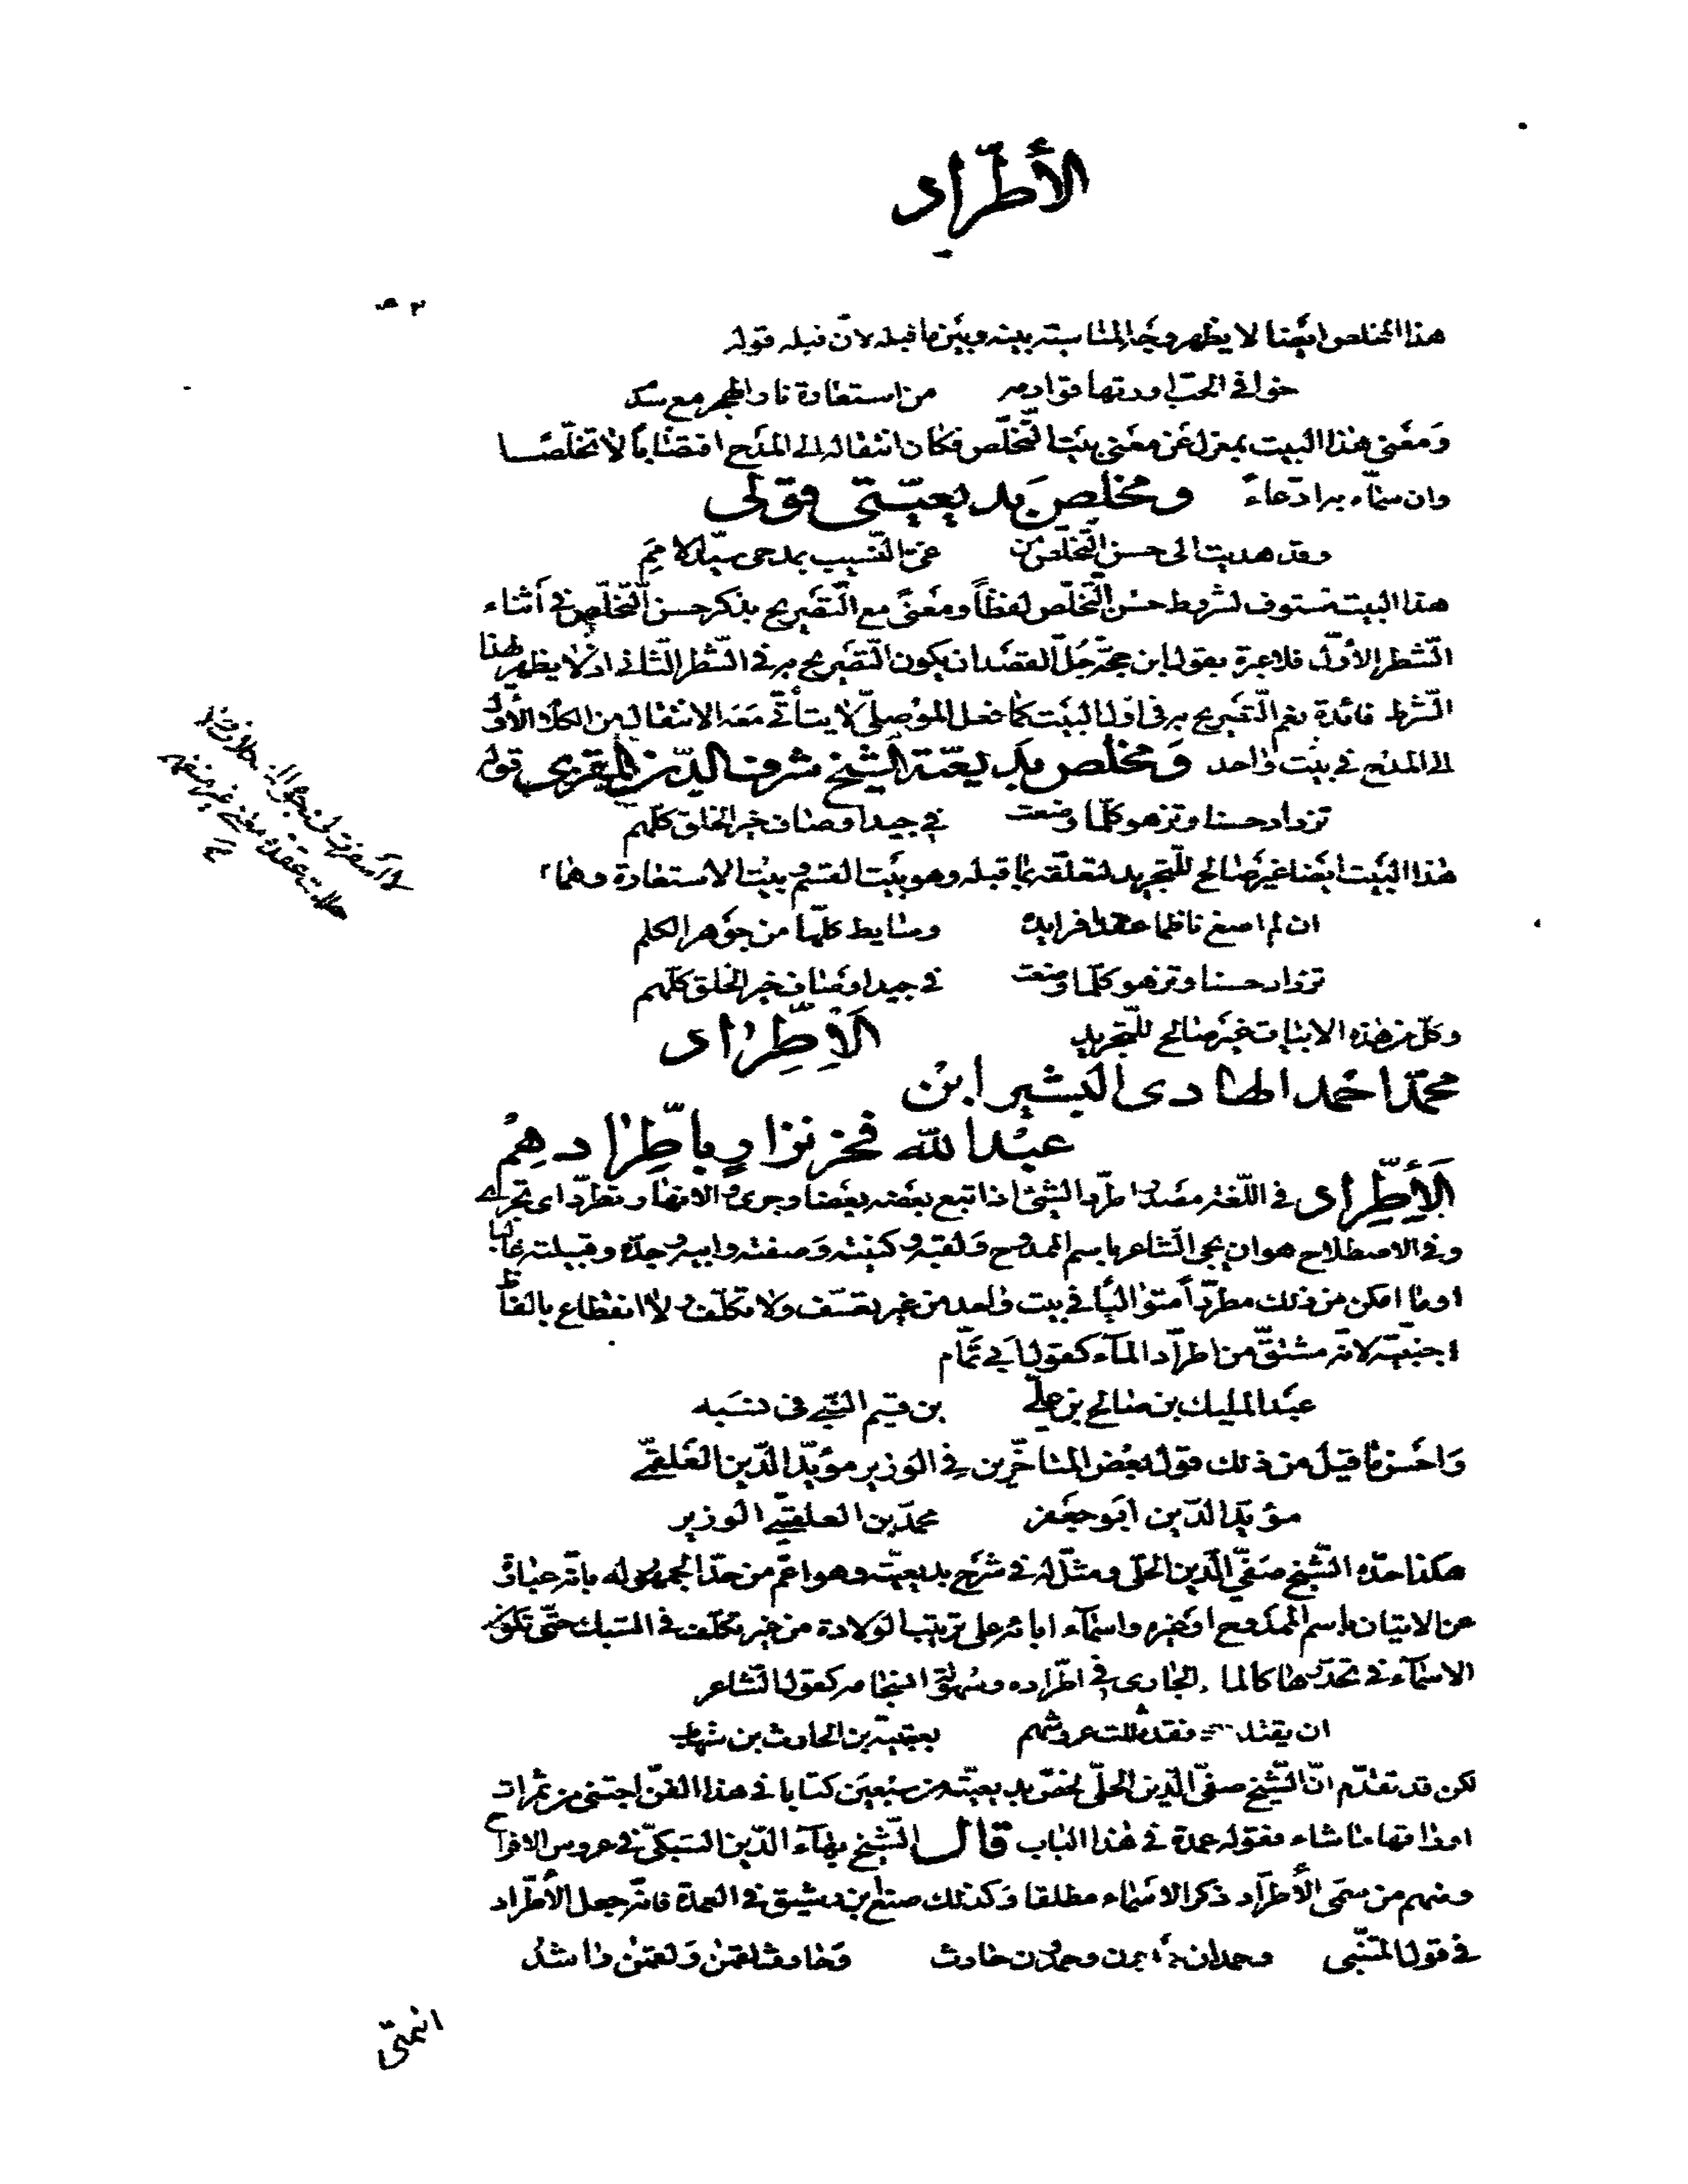 الأطّراد
هذا المخلص ايضا لا يظهر وجه المناسبة بينه وبين ما قبله لان قبله قوله
خوافي الحبّ اودتها قوادمه من استعارة نار الهجر مع
وَمعنى هذا البيت بمعزل عَن معنى بيت التّخلّص فكان انتقاله الى المدح اقتضابا لا تخلّصًا
وان سمّاه به ادّعاءً ومخلص بديعيّتي قولى
وقد هديت الى حسن التّخلّص من عىّ النّسيب بمدحى سيّد الامم
هذا البيت مستوف لشروط حسن التّخلّص لفظاً ومعنىً مع التّصريح بذكر حسن التّخلّص في أثناء
الشّطر الأوّل فلا عبرة بقول ابن حجّة جُلّ القصد ان يكون التّصريح به في الشّطر الثّاني اذ لا يظهر لهذا
الشّرط فائدة نعم التّصريح به في اوّل البيت كما فعل الموصلىّ لا يتأتّى مَعَه الانتقال من الكلام الأوّل
الى المدح في بيت واحد وَمخلص بديعيّة الشيخ شرف الدّين المقرى قوله
تزداد حسنا وتزهو كلّما وضعت في جيد اوصاف خير الخلق كلّهم
هذا البيت ايضا غير صالح للتّجريد لتعلّقه بما قبله وهو بيت القسم وبيت الاستعارة وهما
ان لم اصغ ناظما عقدا فرايده وسايط كلّها من جوهر الكلم
تزداد حسنا وتزهو كلّما وضعت في جيد اوصاف خير الخلق كلّهم
وكلّ من هذه الابيات غير صالح للتّجريد الاِطّراد
محمّد احمد الهادى البشير ابن
عبد الله فخر نزارٍ باطّرادهم
الأِطّراد في اللّغة مصدر اطّرد الشيئ اذا تبع بعضه بعضا وجرى والانهار تطّرد اى تجرى
وفي الاصطلاح هو ان يجئ الشّاعر باسم الممدوح وَلقبه وكنيته وَصفته وابيه وجدّه وقبيلته غالبا
اوما امكن من ذلك مطّرداً متواليًا في بيت واحد من غير تعسّف ولا تكلّف ولا انقطاع بالفاظ
اجنبيّة لانّه مشتقّ من اطّراد المآء كقول ابي تمّام
عبد المليك بن صالح بن علىّ بن قسيم النبّى في نسَبه
وَاحسن ما قيل من ذلك قول بعض المتاخّرين في الوزير مؤيّد الدّين العَلقمّى
مؤيّد الدّين ابو جعفر محمّد بن العلقمىّ الوزير
هكذا حدّه الشّيخ صَفىّ الدّين الحلّى ومثّل له في شرح بديعيّته وهو اعمّ من حدّ الجمهور له بانّه عبارة
عن الاتيان باسم الممدوح اوغيره واسمآء ابائه على ترتيب الولادة من غير تكلّف في السّبك حتّى تكون
الاسمآء في تحدّرها كالماء الجارى في اطّراده وسهولة انسجامه كقول الشّاعر
ان يقتلوك فقد ثللت عروشهم بعتيبة بن الحارث بن شهاب
لكن قد تقدّم انّ الشّيخ صفىّ الدّين الحلّى لخص بديعيّته من سبعين كتابا في هذا الفنّ اجتنى من ثمرات
اوراقها ما شاء فقوله عمدة في هذا الباب قال الشّيخ بهآء الدّين السّبكىّ في عروس الافراح
ومنهم من سمّى الأطّراد ذكر الاسماء مطلقا وَكذلك صنع ابن رشيق في العمدة فانّه جعل الأطّراد
في قول المتنبّى وحمدان حمدون وحمدون حارث وَحارث لقمن وَلقمن راشد
انتهى